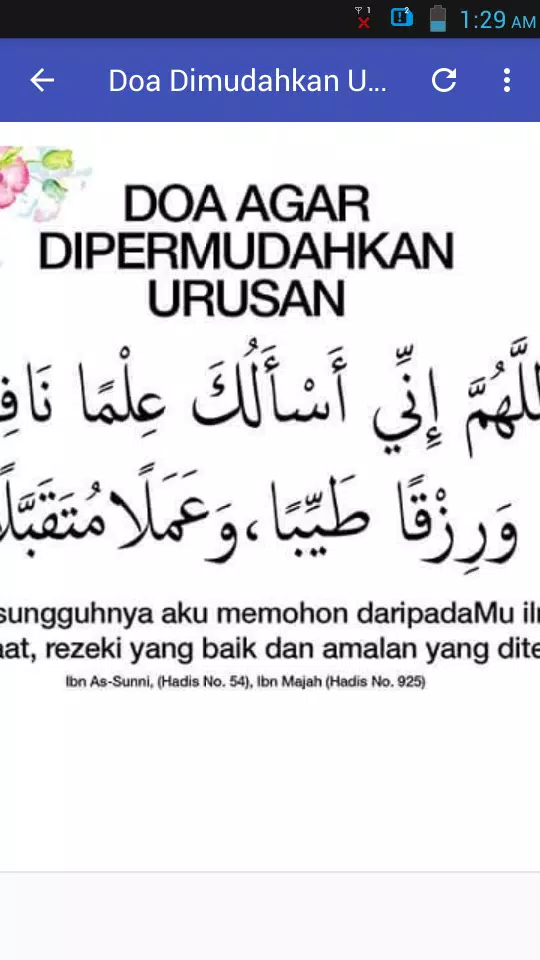 1 2 1:29 AM
Doa Dimudahkan U...
DOA AGAR
DIPERMUDAHKAN
URUSAN
للَّهُمَّ إِنِّي أَسْأَلُكَ عِلْمًا نَافِ
وَرِزْقًا طَيِّبًا، وَعَمَلًا مُتَقَبَّلًا
sungguhnya aku memohon daripadaMu il
at, rezeki yang baik dan amalan yang dite
Ibn As-Sunni, (Hadis No. 54), Ibn Majah (Hadis No. 925)